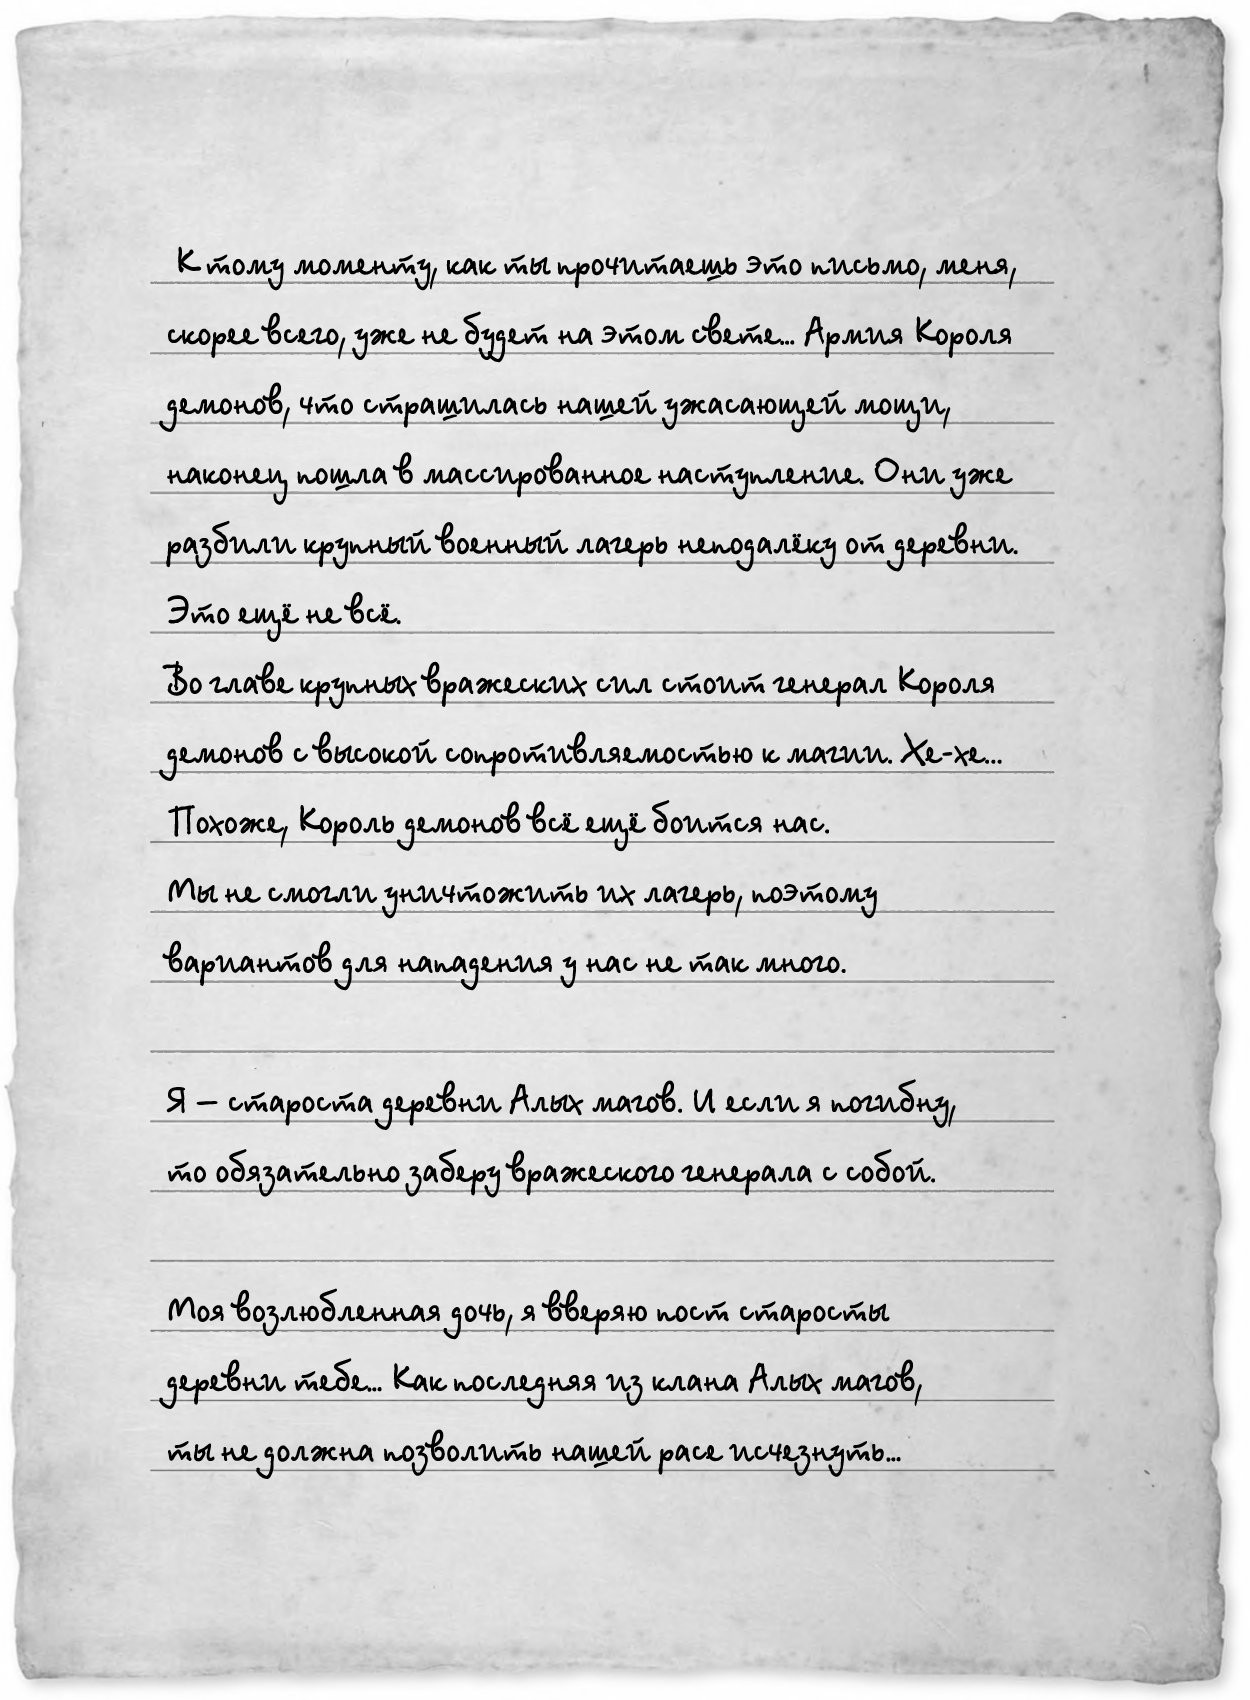 К тому моменту, как ты прочитаешь это письмо, меня,
скорее всего, уже не будет на этом свете... Армия Короля
демонов, что страшилась нашей ужасающей мощи,
наконец пошла в массированное наступление. Они уже
разбили крупный военный лагерь неподалёку от деревни.
Это ещё не всё.
Во главе крупных вражеских сил стоит генерал Короля
демонов с высокой сопротивляемостью к магии. Хе-хе...
Похоже, Король демонов всё ещё боится нас.
Мы не смогли уничтожить их лагерь, поэтому
вариантов для нападения у нас не так много.
Я — староста деревни Алых магов. И если я погибну,
то обязательно заберу вражеского генерала с собой.
Моя возлюбленная дочь, я вверяю пост старосты
деревни тебе... Как последняя из клана Алых магов,
ты не должна позволить нашей расе исчезнуть...